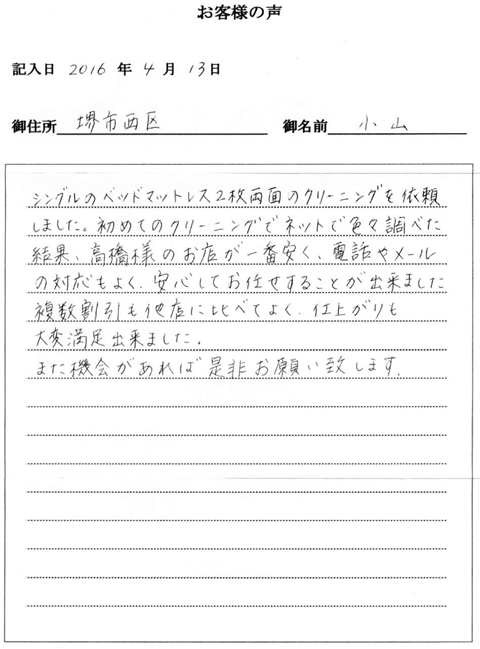 お客様の声
記入日 2016 年 4 月 13日
御住所 堺市西区 御名前 小山
シングルのベッドマットレス2枚両面のクリーニングを依頼
しました。初めてのクリーニングでネットで色々調べた
結果、高橋様のお店が一番安く、電話やメール
の対応もよく、安心してお任せすることが出来ました
複数割引も他店に比べてよく、仕上がりも
大変満足出来ました。
また機会があれば是非お願い致します。